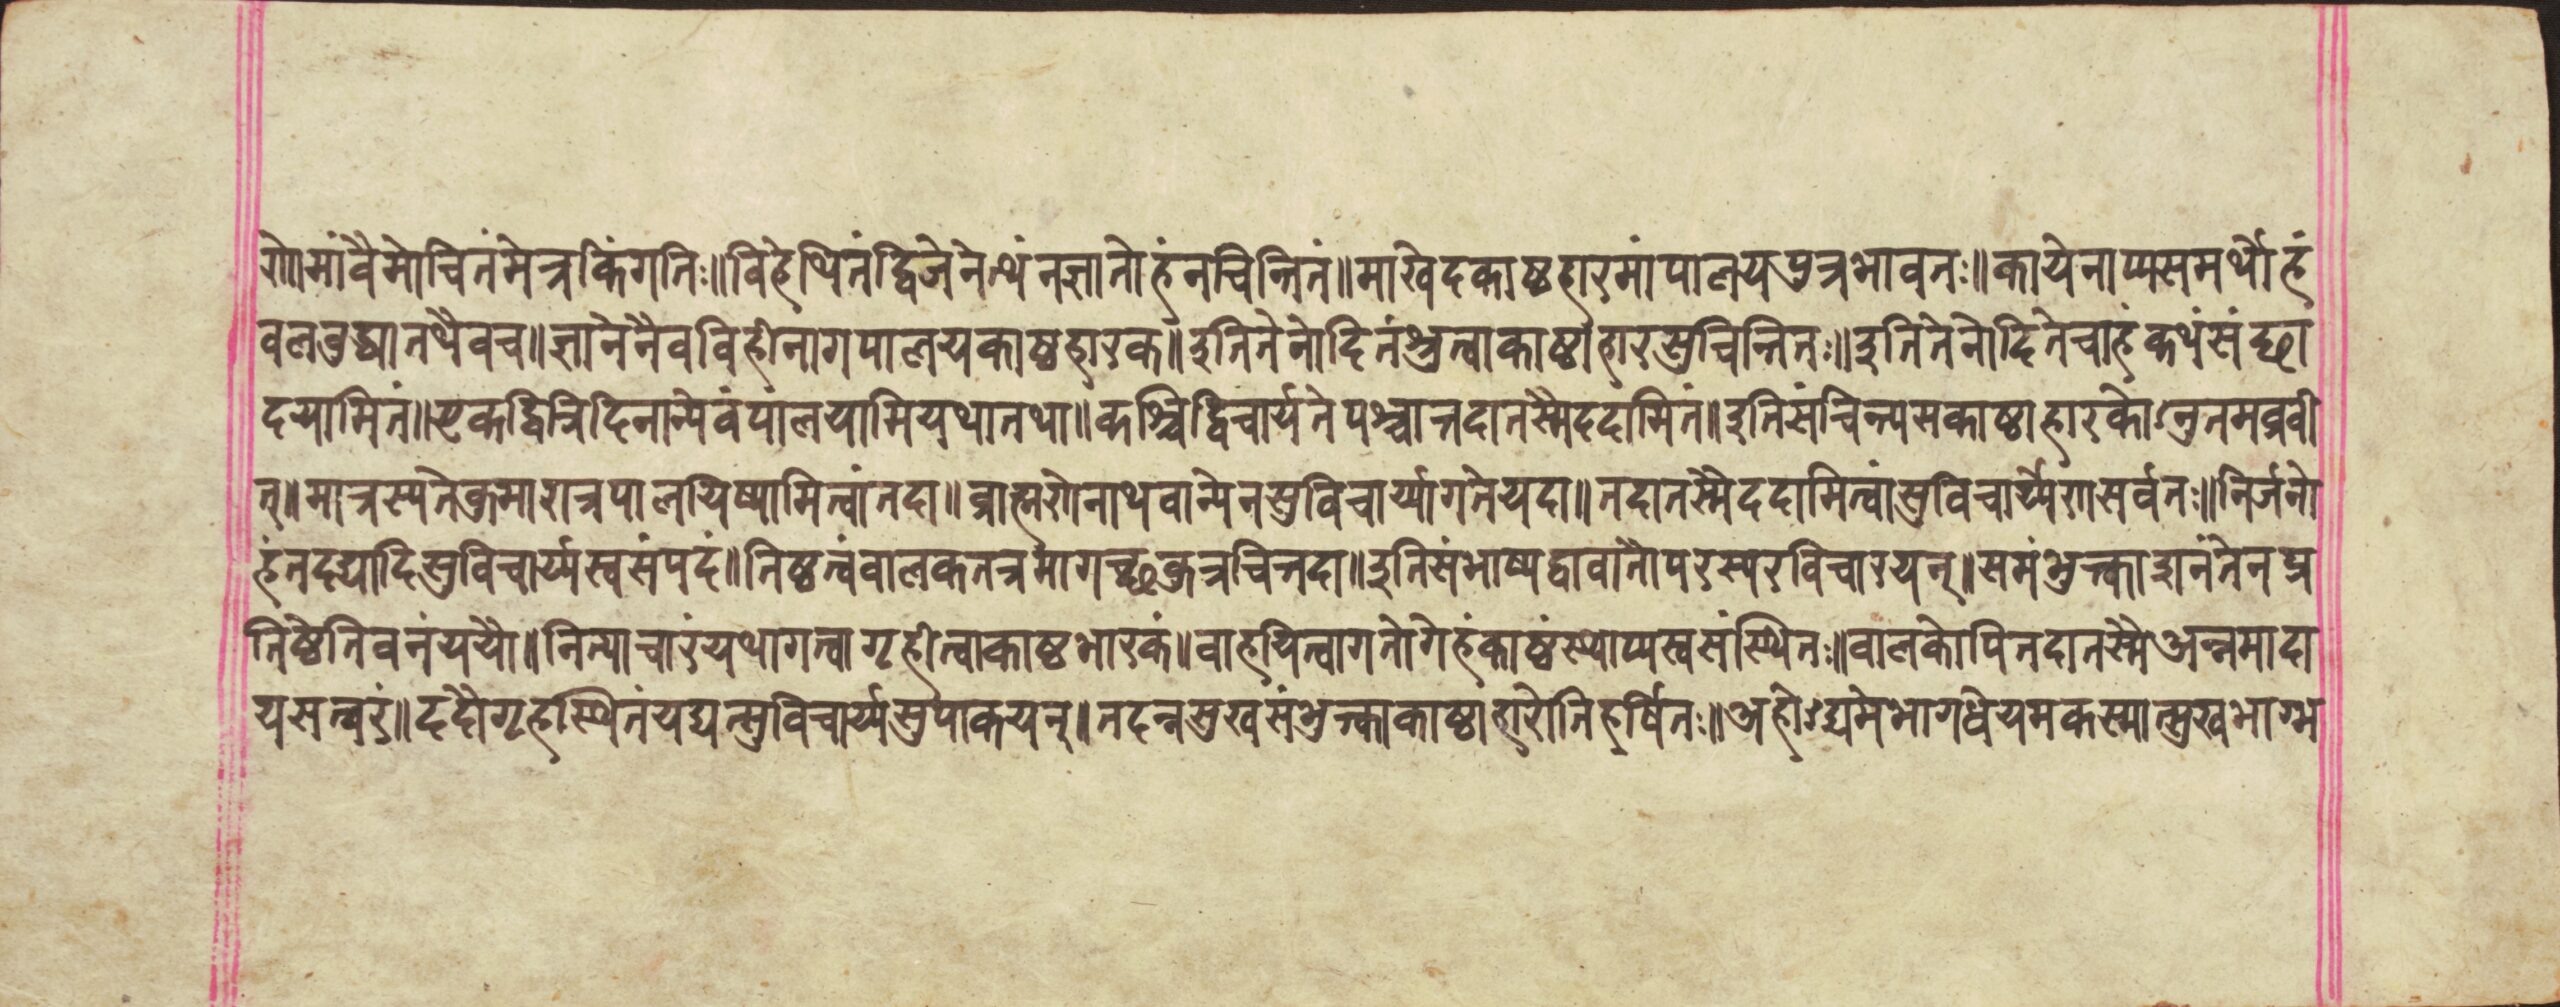 णोमांवैमोचितंमेत्रकिंगतिः॥विहेथितंद्विजेनेत्थंनज्ञातोहंनचिन्तितं॥माखेदकाष्ठहारमांपालयपुत्रभावतः॥कायेनाप्यसमर्थोहं
वलवुद्ध्यातथैवच॥ज्ञानेनैवविहीनांगपालयकाष्ठहारक॥इतितेनोदितंश्रुत्वाकाष्ठाहारसुचिन्तितः॥इतितेनोदितेचाहंकथंसंछा
दयामितं॥एकद्वित्रिदिनान्येवंपालयामियथातथा॥कश्चिद्विचार्यतेपश्चात्तदातस्मैददामितं॥इतिसंचिन्त्यसकाष्ठाहारकोऽनुतमव्रवी
त्॥मात्रस्यतेकुमारात्रपालयिष्यामित्वांतदा॥व्राह्मणोनाथवान्येनसुविचार्य्यागतेयदा॥तदातस्मैददामित्वांसुविचार्य्येणसर्वतः॥निर्जनो
हंनदद्यादिसुविचार्य्यस्वसंपदं॥तिष्ठत्वंवालकतत्रमागच्छकुत्रचित्तदा॥इतिसंभाष्यद्वावांतौपरस्परविचारयन्॥समंभुक्त्वाद्वानंतेनप्र
तिष्ठेतिवनंययौ॥नित्याचारंयथागत्वागृहीत्वाकाष्ठभारकं॥वाहयित्वागतोगेहंकाष्ठंस्थाप्यस्वसंस्थितः॥वालकोपितदातस्मैअन्नमादा
यसत्वरं॥ददौगृहस्थितंयद्यत्सुविचार्य्यसुपाकयन्॥तदन्नसुखसंभुक्त्वाकाष्ठाहारोतिहर्षितः॥अहोऽद्यमेभागधेयमकस्मात्सुखभाग्भ